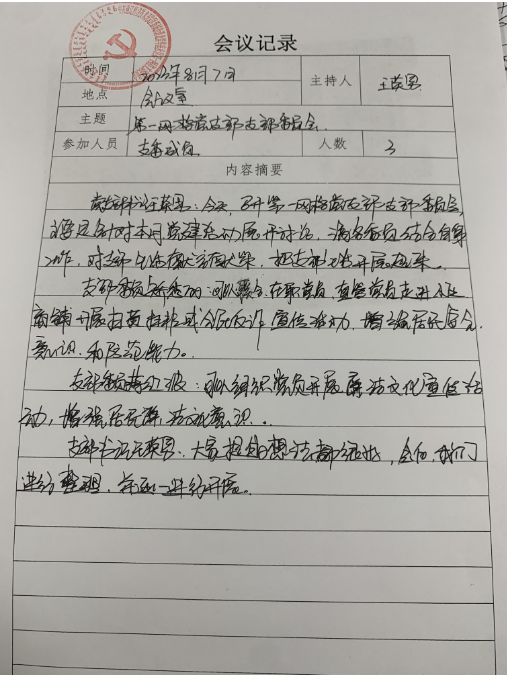 会议记录
时间 2023年8月7日 主持人 王荣恩
地点 会议室
主题 第一网格党支部支部委员会
参加人员 支委成员 人数 3
内容摘要
党支部书记王荣恩：今天，召开第一网格党支部支部委员会，
主要是针对本月党建活动展开讨论，请各委员结合自身
工作，对支部生活献言献策，把支部工作开展起来。
支部委员：可以联合在职党员，直管党员走进小区
商铺开展扫黄扫非或全民反诈宣传活动，增强居民安全
意识和防范能力。
支部委员：可以组织党员开展廉洁文化宣传活
动，增强居民廉洁意识。
支部书记王荣恩：大家提的想法都很好，会后，我们
进行整理，逐一进行开展。